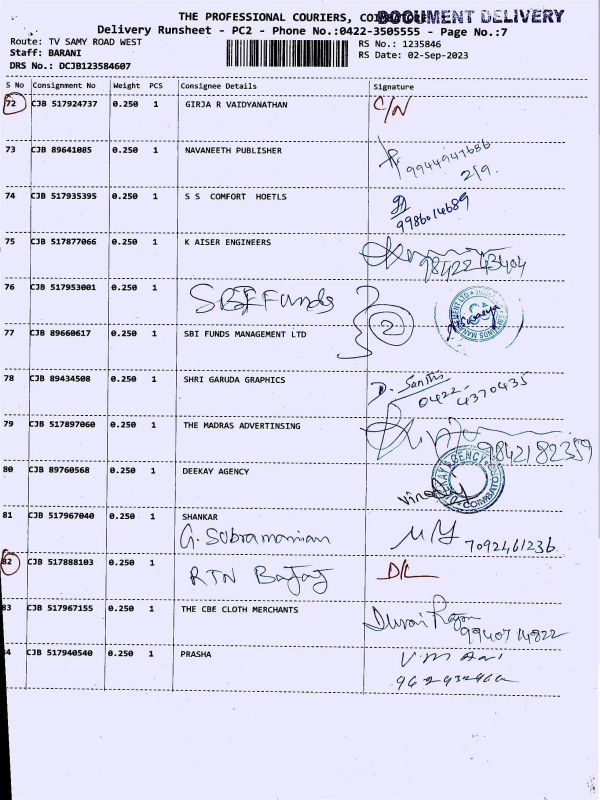 THE PROFESSIONAL COURIERS, DOCUMENT DELIVERY
Delivery Runsheet - PC2 - Phone No.:0422-3505555 - Page No.:7
Route: TV SAMY ROAD WEST RS No.: 1235846
Staff: BARANI RS Date: 02-Sep-2023
DRS No.: DCJB123584607
S No Consignment No Weight PCS Consignee Details Signature
72 CJB 517924737 0.250 1 GIRJA R VAIDYANATHAN C/N
73 CJB 89641085 0.250 1 NAVANEETH PUBLISHER
9944947686
2/9.
74 CJB 517935395 0.250 1 S S COMFORT HOETLS
9986014689
75 CJB 517877066 0.250 1 K AISER ENGINEERS
9842243404
76 CJB 517953001 0.250 1 SBI Funds
2
77 CJB 89660617 0.250 1 SBI FUNDS MANAGEMENT LTD
78 CJB 89434508 0.250 1 SHRI GARUDA GRAPHICS D. Santhi
0422-
4370435
79 CJB 517897060 0.250 1 THE MADRAS ADVERTINSING
9842182359
80 CJB 89760568 0.250 1 DEEKAY AGENCY
81 CJB 517967040 0.250 1 SHANKAR
G. Subramanian 7092461236
82 CJB 517888103 0.250 1 RTN Bajaj D/L
83 CJB 517967155 0.250 1 THE CBE CLOTH MERCHANTS Durai Rajan
9940714822
CJB 517940540 0.250 1 PRASHA V M Ani